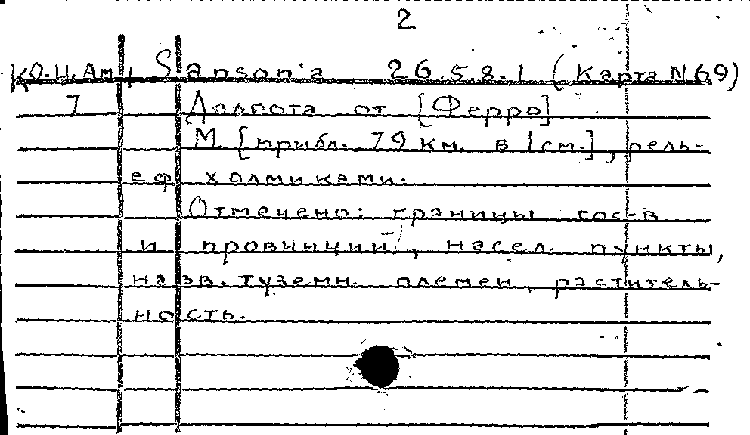 2
Ю.Н.Ам. Sanson'a 26.5.8.1 (Карта N 69)
7 Долгота от [Ферро]
М [прибл. 79 км. в 1 см.], рель-
еф холмиками.
Отмечено: границы гос-в
и провинций, насел. пункты,
назв. туземн. племен, раститель-
ность.